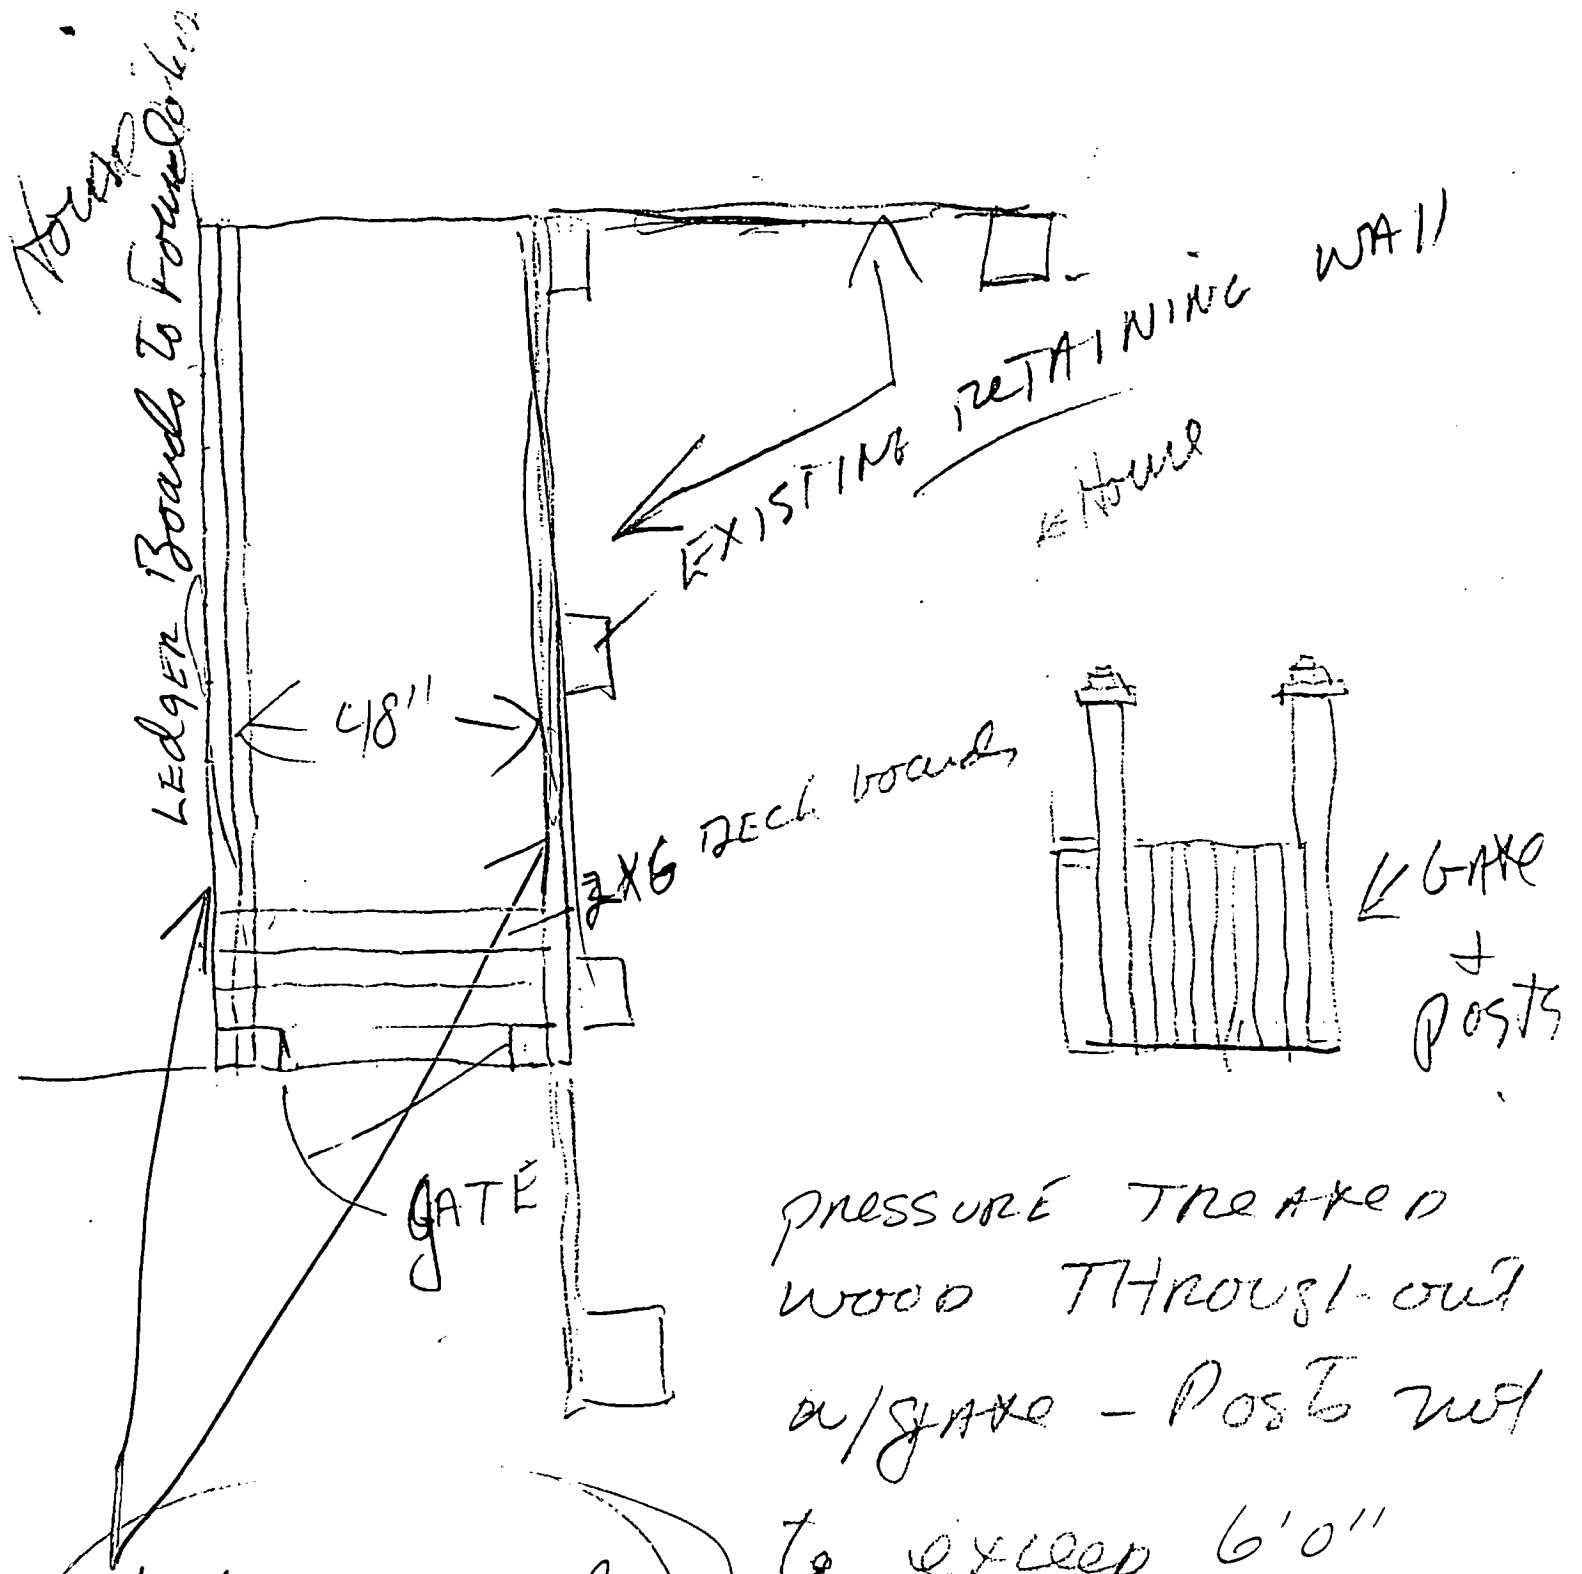 House
Ledger Boards To Foundation
EXISTING RETAINING WALL
House
48"
2X6 DECK boards
GATE
+
POSTS
GATE
PRESSURE TREATED
WOOD THROUGH-OUT
w/GATE - POSTS NOT
To exceed 6'0"